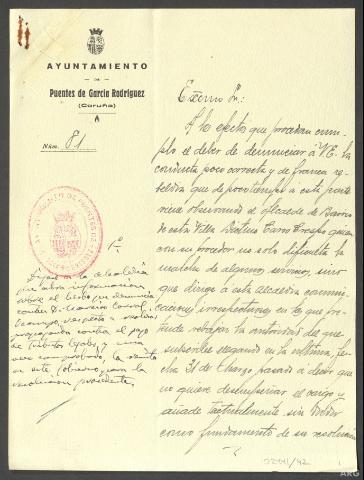 AYUNTAMIENTO
DE
Puentes de García Rodríguez
(Coruña)
Núm. 81
Excmo Sr.:
A los efectos que procedan cum-
plo el deber de denunciar a V.E. la
conducta poco correcta y de franca re-
beldía que de poco tiempo a esta parte
viene observando el alcalde de Barrio
de esta Villa Crespo quien
con su proceder no solo dificulta la
marcha de algunos servicios, sino
que dirige a esta alcaldía comuni-
caciones irrespetuosas en las que pre-
tende rebajar la autoridad del que
suscribe llegando en la última, fe-
cha 31 de Marzo pasado a decir que
no quiere desempeñar el cargo y
añade textualmente, sin
como fundamento de su resolución
1º
Diríjase a la alcaldía
que abra información
sobre el hecho que denuncia
contra D.
respecto a
propaganda contra el pago
de tributos legales y una
vez comprobado, la remita
a este Gobierno para la
resolución procedente.
ARG